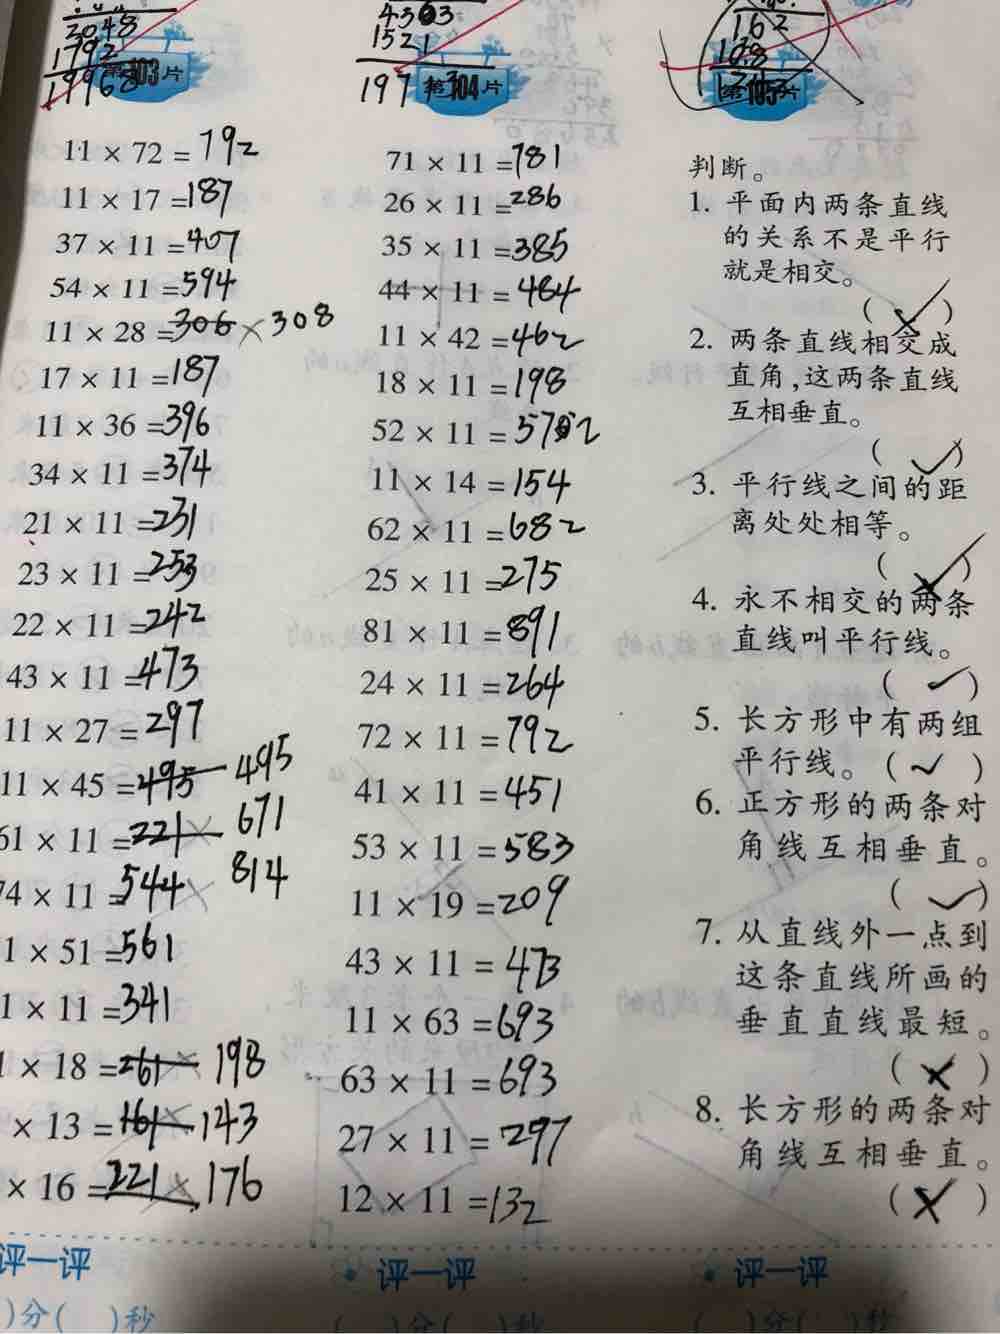 2048
1792
19968
第103片
11 × 72 = 792
11 × 17 = 187
37 × 11 = 407
54 × 11 = 594
11 × 28 = 306 × 308
17 × 11 = 187
11 × 36 = 396
34 × 11 = 374
21 × 11 = 231
23 × 11 = 253
22 × 11 = 242
43 × 11 = 473
11 × 27 = 297
11 × 45 = 495 495
61 × 11 = 221 × 671
74 × 11 = 544 × 814
1 × 51 = 561
1 × 11 = 341
1 × 18 = 261 × 198
× 13 = 161 × 143
× 16 = 221 × 176
评一评
)分( )秒
4563
1521
第104片
71 × 11 = 781
26 × 11 = 286
35 × 11 = 385
44 × 11 = 484
11 × 42 = 462
18 × 11 = 198
52 × 11 = 572
11 × 14 = 154
62 × 11 = 682
25 × 11 = 275
81 × 11 = 891
24 × 11 = 264
72 × 11 = 792
41 × 11 = 451
53 × 11 = 583
11 × 19 = 209
43 × 11 = 473
11 × 63 = 693
63 × 11 = 693
27 × 11 = 297
12 × 11 = 132
评一评
( )分( )秒
162
第105片
判断。
1. 平面内两条直线
的关系不是平行
就是相交。
( ✓ )
2. 两条直线相交成
直角,这两条直线
互相垂直。
( ✓ )
3. 平行线之间的距
离处处相等。
( ✓ )
4. 永不相交的两条
直线叫平行线。
( ✓ )
5. 长方形中有两组
平行线。( ✓ )
6. 正方形的两条对
角线互相垂直。
( ✓ )
7. 从直线外一点到
这条直线所画的
垂直直线最短。
( × )
8. 长方形的两条对
角线互相垂直。
( × )
评一评
( )分( )秒